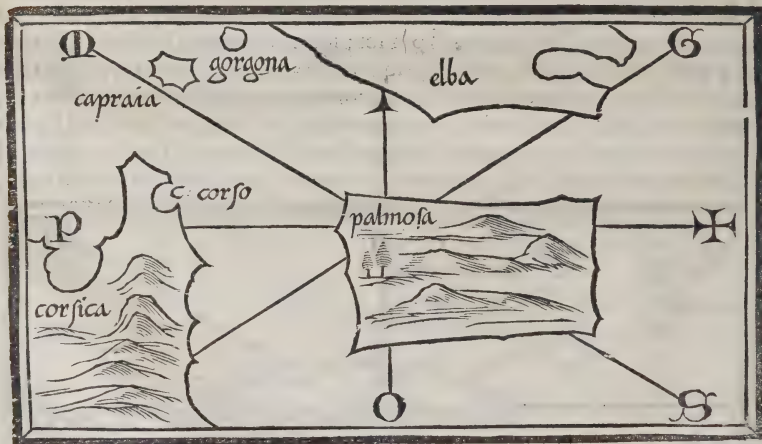 M
gorgona
elba
G
capraia
c. corso
P
palmoſa
corſica
O
S